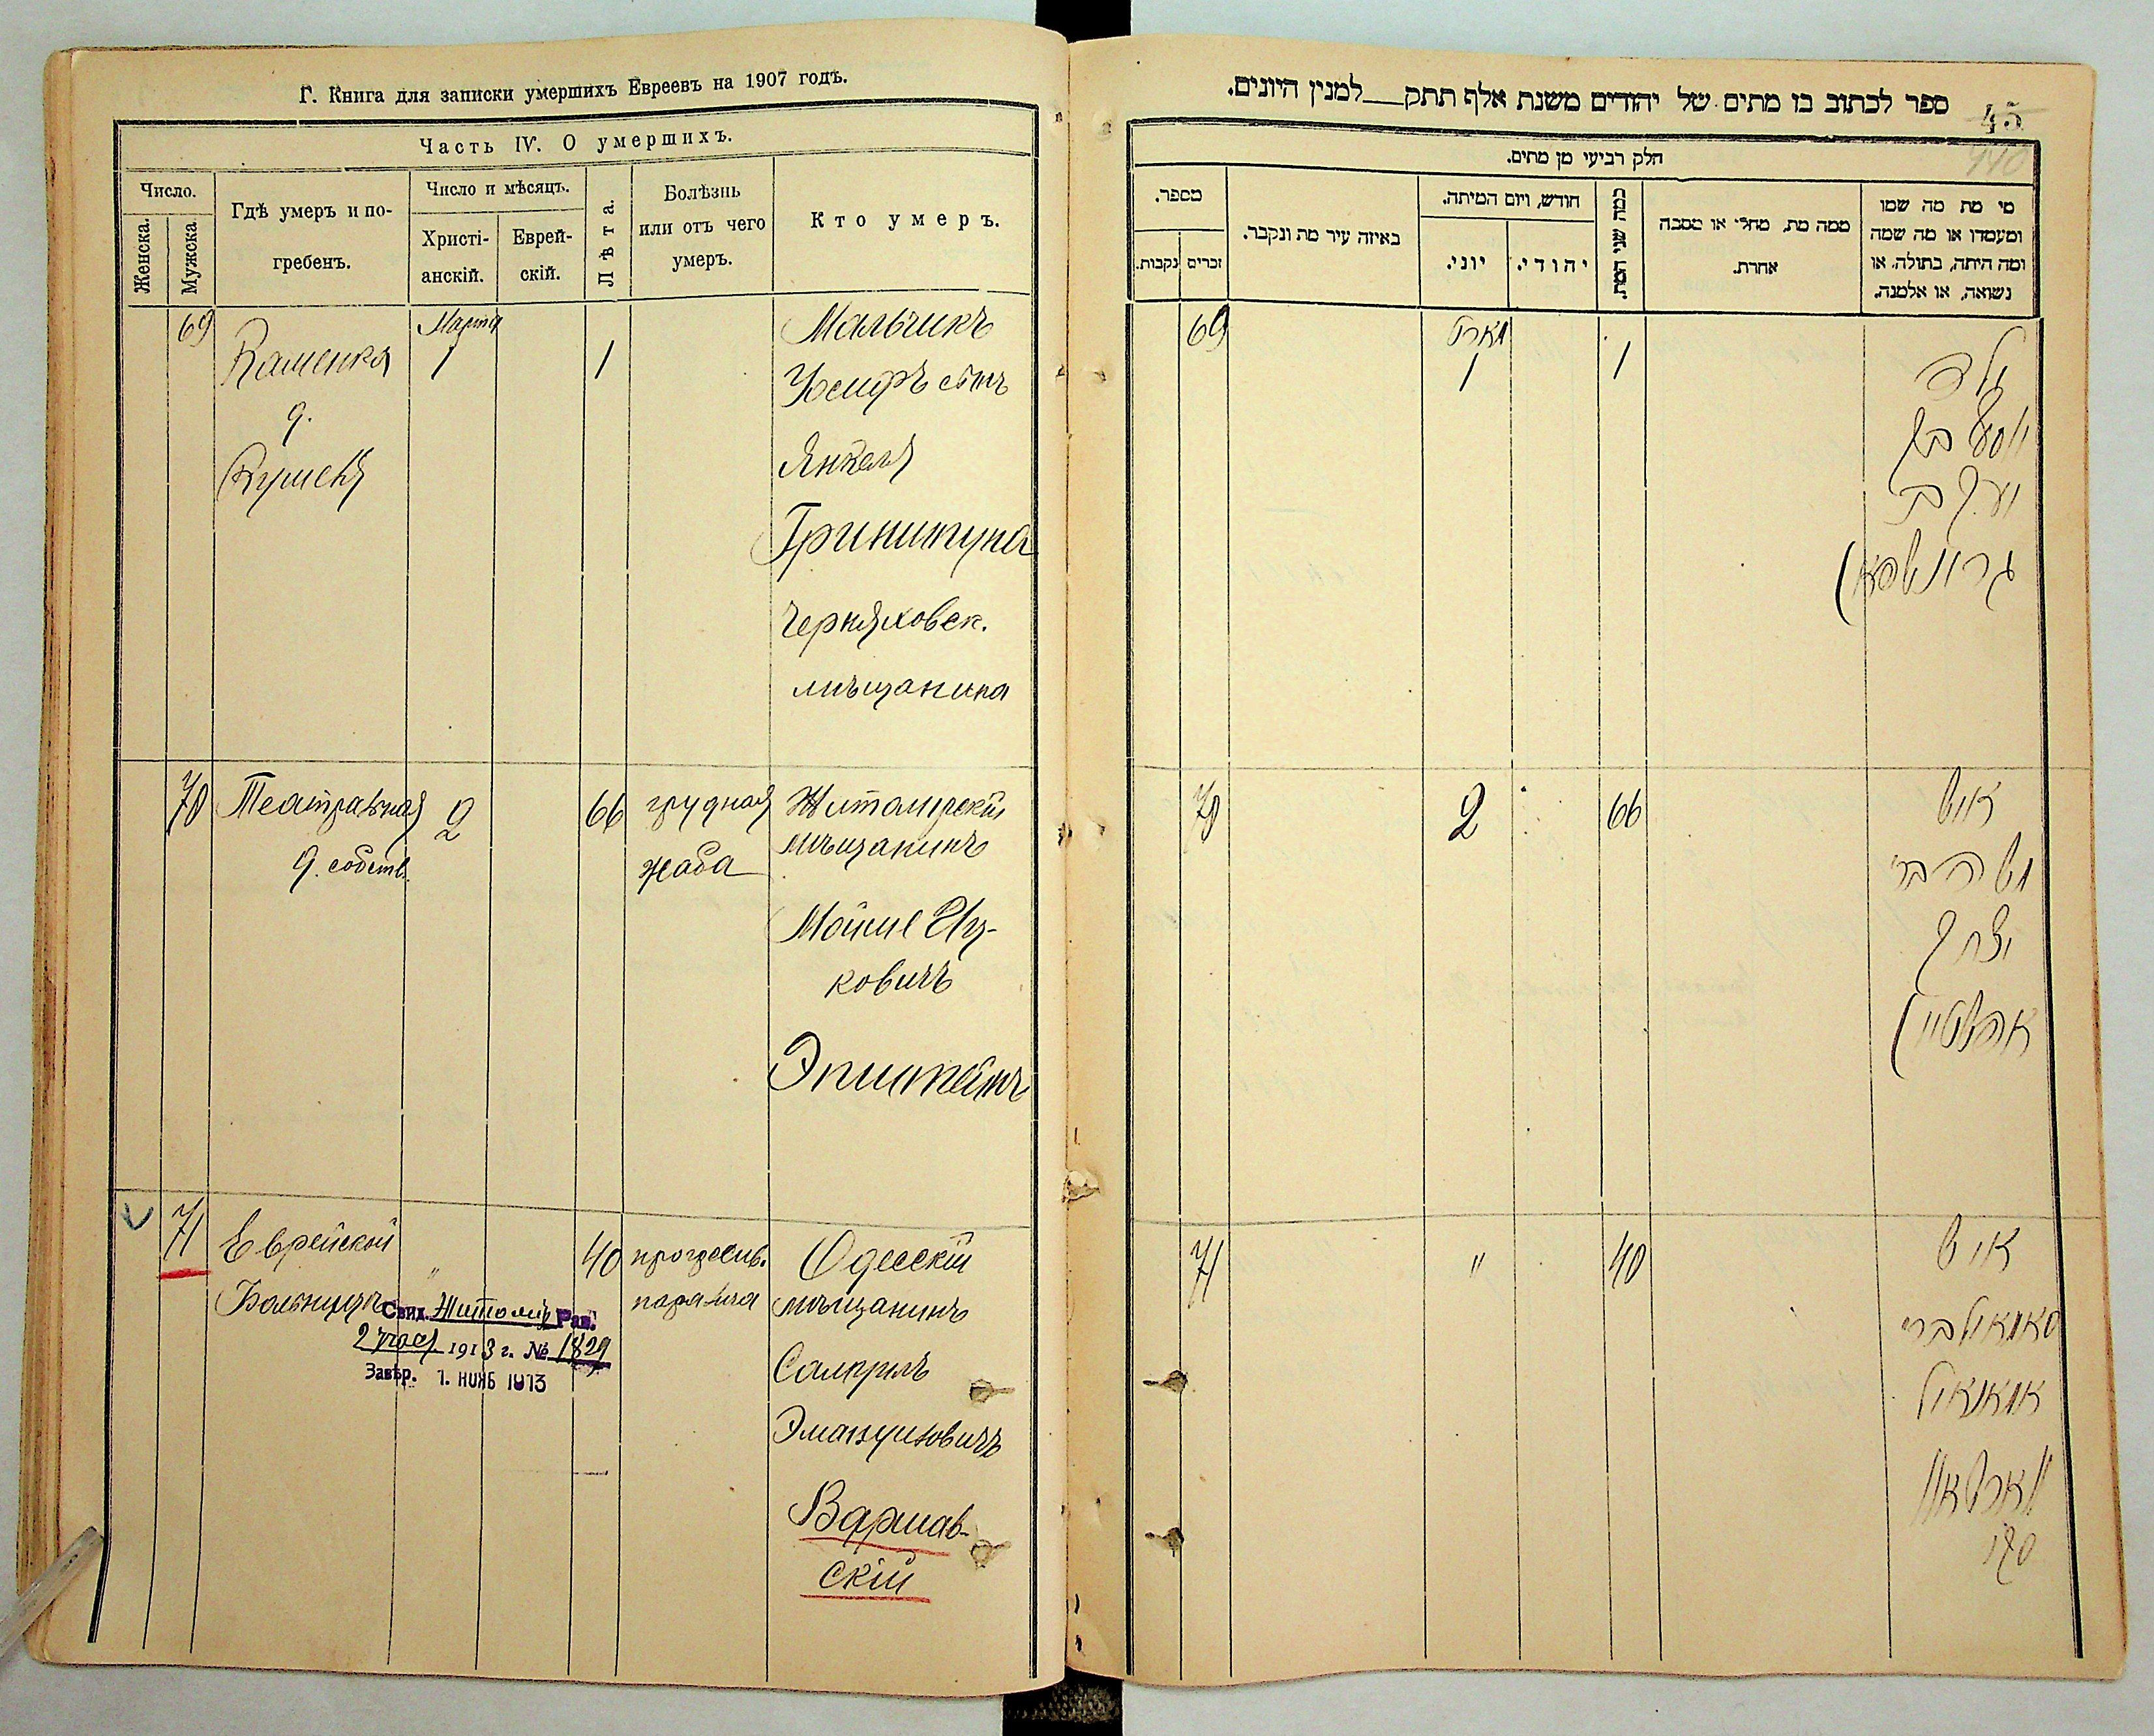 Г. Книга для записки умершихъ Евреевъ на 1907 годъ.
Часть IV. О умершихъ.
Число.
Женска.
Мужска.
Гдѣ умеръ и по-
гребенъ.
Число и мѣсяцъ.
Христі-
анскій.
Еврей-
скій.
Лѣта.
Болѣзнь
или отъ чего
умеръ.
Кто умеръ.
69
Каменка
д.
Марта
1
1
Мальчикъ
Іосифъ сынъ
Янкеля
Гриншпуна
Черняховск.
мѣщанина
70
Театральная
д. собств.
2
66
грудная
жаба
Житомірскій
мѣщанинъ
Мойше Иц-
ковичъ
Эпштейнъ
71
Еврейской
Больницѣ
"
40
прогресив.
параличъ
Одесскій
мѣщанинъ
Эмануиловичъ
Варшав-
скій
Свид. Житомір Рав.
1913 г. № 1829
Завѣр. 1. НОЯБ 1913
ספר לכתוב בו מתים של יהודים משנת אלף תתק למנין היונים.
45
140
חלק רביעי מן מתים.
מספר.
נקבות.
זכרים
באיזה עיר מת ונקבר.
חודש, ויום המיתה.
יוני.
יהודי.
כמה שני המת.
ממה מת, מחלי או מסבה
אחרת.
מי מת מה שמו
ומעמדו או מה שמה
ומה היתה, בתולה, או
נשואה, או אלמנה.
69
מארט
1
1
ילד
יוסף בן
יעקב
גרינשפאן
70
2
66
איש
משה בר
יצחק
עפשטיין
71
"
40
איש
סאמואיל בר
עמאנואיל
ווארשאוו
סקי